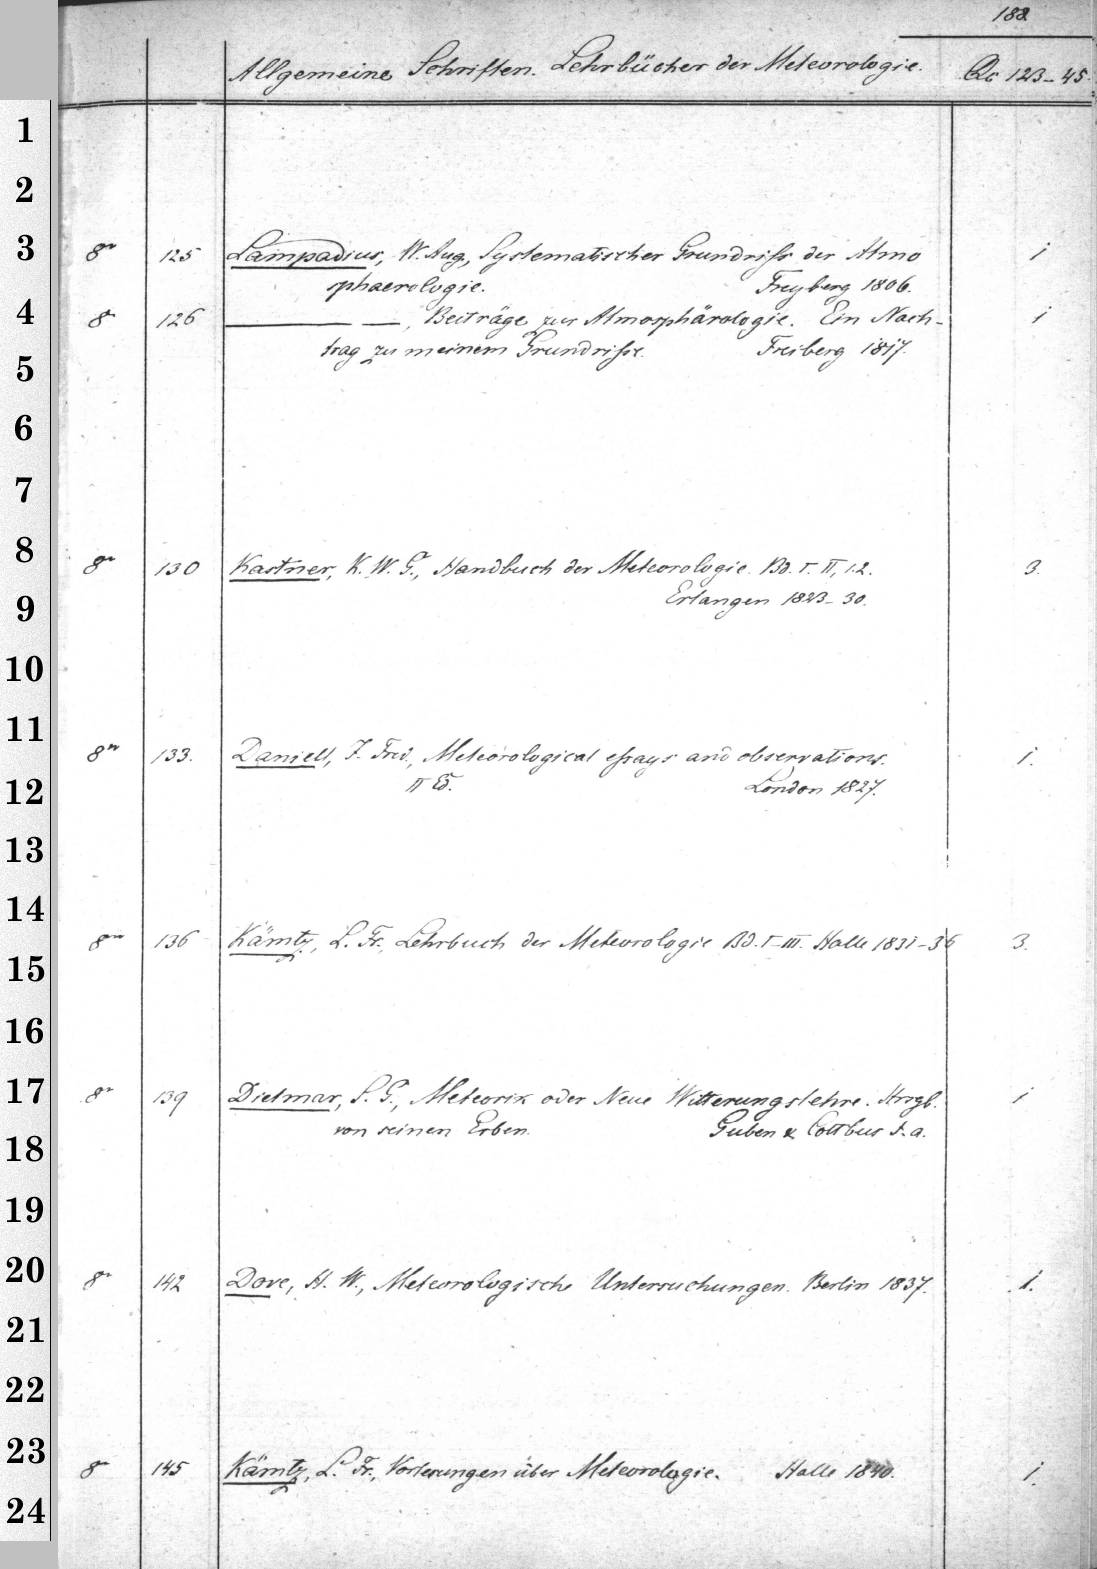 188
Allgemeine Schriften. Lehrbücher der Meteorologie. Qc 123-45.
1
2
3 8° 125 Lampadius, W. Aug., Systematischer Grundriss der Atmo 1
sphaerologie. Freyberg 1806.
4 8 126 ——— —, Beiträge zur Atmosphärologie. Ein Nach- 1
trag zu meinem Grundrisse. Freiberg 1817.
5
6
7
8 8° 130 Kastner, K. W. G., Handbuch der Meteorologie. Bd. I. II, 1.2. 3.
9 Erlangen 1823-30.
10
11 8° 133. Daniell, J. Fred., Meteorological essays and observations. 1.
12 II Ed. London 1827.
13
14
8° 136 Kämtz, L. Fr., Lehrbuch der Meteorologie Bd. I-III. Halle 1831-36 3.
15
16
17 8° 139 Dietmar, S. G., Meteorik oder Neue Witterungslehre. Hrsgb. 1
18 von seinen Erben. Guben & Cottbus s. a.
19
20 8° 142 Dove, H. W., Meteorologische Untersuchungen. Berlin 1837. 1.
21
22
23 8° 145 Kämtz, L. Fr., Vorlesungen über Meteorologie. Halle 1840. 1.
24